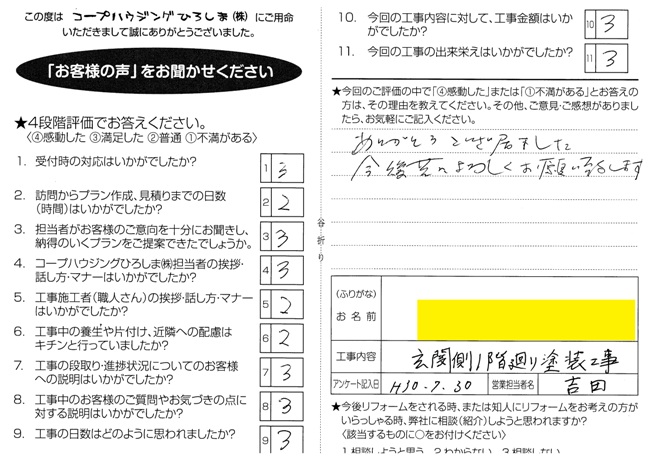 この度は コープハウジングひろしま(株) にご用命
いただきまして誠にありがとうございました。
「お客様の声」をお聞かせください
★4段階評価でお答えください。
〈④感動した ③満足した ②普通 ①不満がある〉
1. 受付時の対応はいかがでしたか? 1 3
2. 訪問からプラン作成、見積りまでの日数
(時間)はいかがでしたか? 2 2
3. 担当者がお客様のご意向を十分にお聞きし、
納得のいくプランをご提案できたでしょうか。 3 3
4. コープハウジングひろしま㈱担当者の挨拶・
話し方・マナーはいかがでしたか? 4 3
5. 工事施工者(職人さん)の挨拶・話し方・マナー
はいかがでしたか? 5 2
6. 工事中の養生や片付け、近隣への配慮は
キチンと行っていましたか? 6 2
7. 工事の段取り・進捗状況についてのお客様
への説明はいかがでしたか? 7 3
8. 工事中のお客様のご質問やお気づきの点に
対する説明はいかがでしたか? 8 3
9. 工事の日数はどのように思われましたか? 9 3
谷折り
10. 今回の工事内容に対して、工事金額はいか
がでしたか? 10 3
11. 今回の工事の出来栄えはいかがでしたか? 11 3
★今回のご評価の中で「④感動した」または「①不満がある」とお答えの
方は、その理由を教えてください。その他、ご意見・ご感想がありまし
たら、お気軽にご記入ください。
ありがとうござ居ました
今後共によろしくお願い致します
(ふりがな)
お名前
工事内容 玄関側1階廻り塗装工事
アンケート記入日 H30.7.30 営業担当者名 吉田
★今後リフォームをされる時、または知人にリフォームをお考えの方が
いらっしゃる時、弊社に相談(紹介)しようと思われますか?
〈該当するものに○をお付けください〉
1.相談しようと思う 2.わからない 3.相談しない